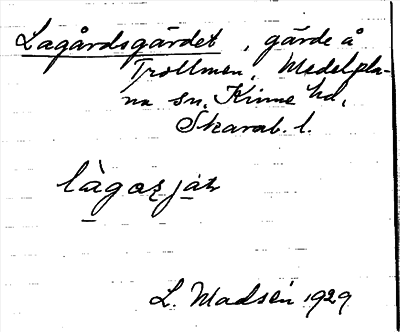 Lagårdsgärdet, gärde å
Trollmen, Medelpla-
na sn, Kinne hd,
Skarab. l.
L. Madsén 1929